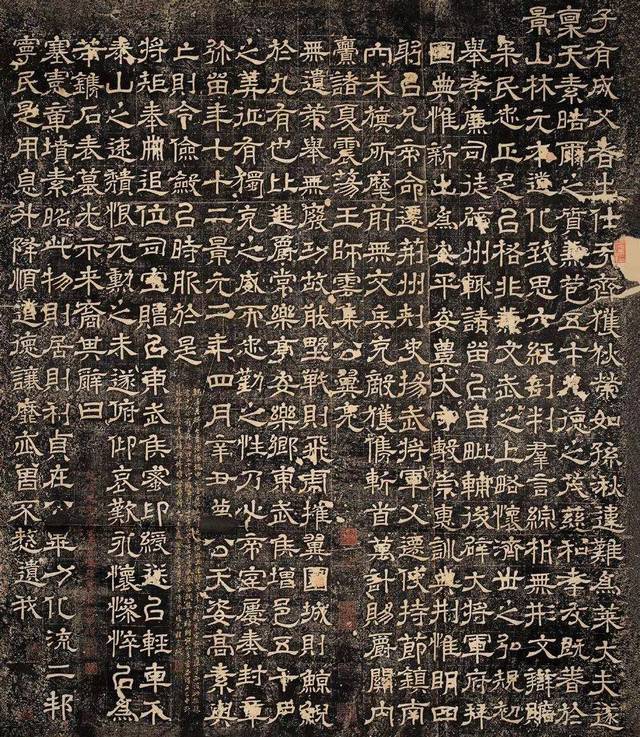 子有成父者出仕于齊獲狄榮如孫湫違難為萊大夫遂
稟天素皓爾之質兼苞五才九德之茂慈和孝友既著於
景山林元本道化致思六經剖判群言綜析無形文辯贍
來民忠正足以格非兼文武之上略懷濟世之弘規初
舉孝廉司徒辟州輒請留以自毗輔後辟大將軍府拜
國典惟新出為安平安豐太守敷崇惠訓典刑惟明四
躬以允帝命遷荊州刺史揚武將軍又遷使持節鎮南
內朱旗所麾前無交兵克敵獲儁斬首萬計賜爵關內
賚諸夏震蕩王師雲集公翼亮
無遺策舉無廢功故能野戰則飛虎摧翼圍城則鯨鯢
於九有也比進爵常樂亭安樂鄉東武侯增邑五千戶
之美征有獨克之威而忠勤之性乃心帝室屢奏封章
彌留年七十二景元二年四月辛丑薨 公天姿高素與
亡則令儉斂以時服於是
將矩奉冊追位司空贈以東武侯蜜印綬送以輕車介
泰山之速穨恨元勳之未遂俯仰哀歎永懷慘悴以為
若鐫石表墓光示來裔其辭曰
塞憲章墳素昭此物則居則利貞在公力化流二邦
民是用息升降順道德讓靡忒曷不憖遺我